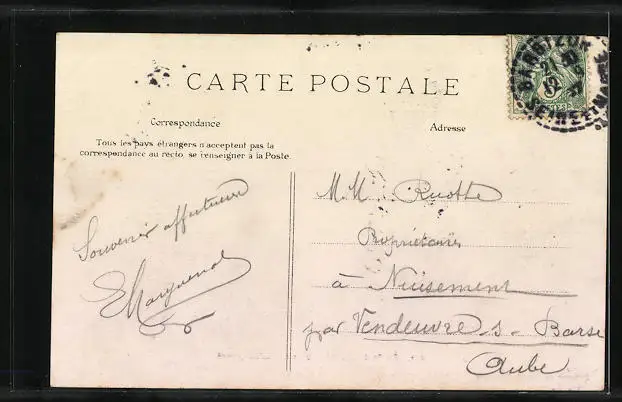 CARTE POSTALE
Correspondance
Adresse
Tous les pays étrangers n'acceptent pas la
correspondance au recto, se renseigner à la Poste.
Souvenir affectueux
M. M. Ruotte
Propriétaire
à Nuisement
par Vendeuvre-s-Barse
Aube
SEINE-ET-M